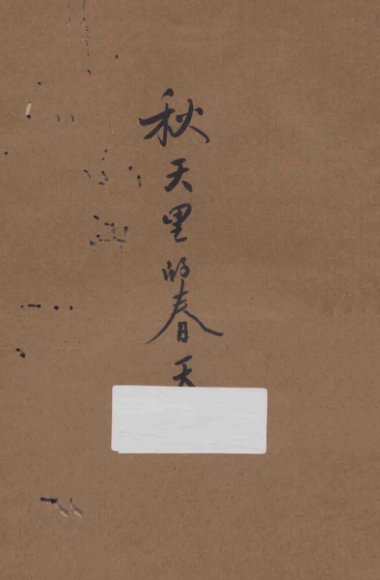 秋天里的春天